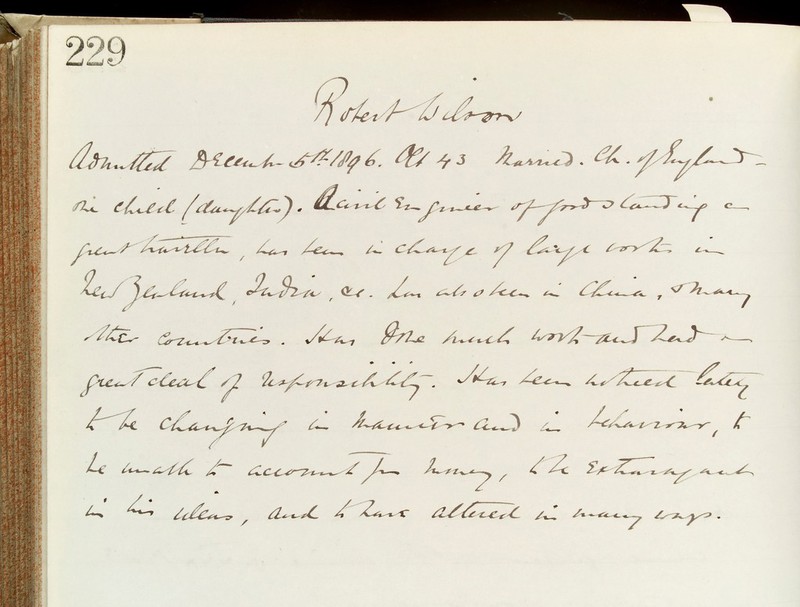 229
Robert Wilson
Admitted December 5th 1896. Æt 43 Married. Ch. of England -
one child (daughter). A civil Engineer of good standing a
great traveller, has been in charge of large works in
New Zealand, India, &c. has also been in China, & many
other countries. Has done much work and had a
great deal of responsibility. Has been noticed lately
to be changing in manner and in behaviour, to
be unable to account for money, to be extravagant
in his ideas, and to have altered in many ways.